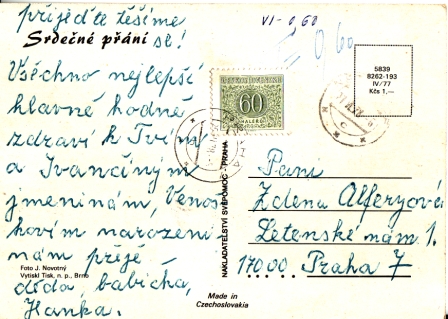 přijeďte těšíme
se!
Srdečné přání
Všechno nejlepší
hlavně hodně
zdraví k Tvým
a Ivančiným
jmeninám, Venouš
kovim narozeni
nám přeje
děda, babička,
Hanka.
Foto J. Novotný
Vytiskl Tisk, n. p., Brno
VI - 0,60
0,60
60
HALÉŘŮ
NAKLADATELSTVÍ SVÉPOMOC - PRAHA
5839
8262-193
IV/77
Kčs 1,—
Paní
Zdena Alferyová
Letenské nám 1.
17000 Praha 7
Made in
Czechoslovakia